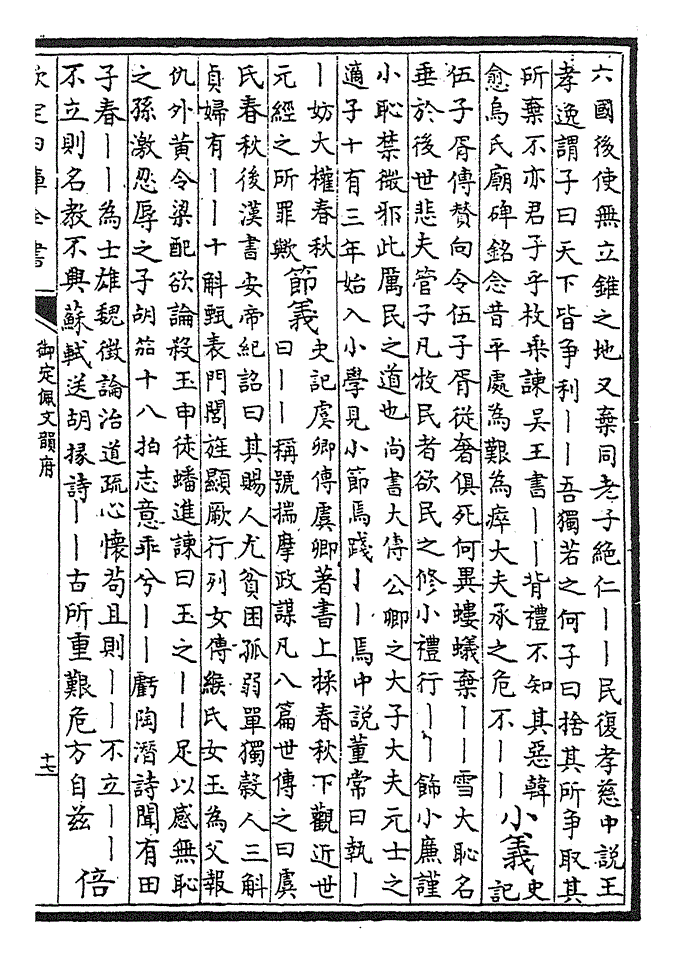 六國後使無立錐之地又棄同老子絶仁｜｜民復孝慈中説王
孝逸謂子曰天下皆争利｜｜吾獨若之何子曰捨其所争取其
所棄不亦君子乎枚乘諫吳王書｜｜背禮不知其惡韓
愈烏氏廟碑銘念昔平處為艱為瘁大夫承之危不｜｜
小義
史
記
伍子胥傳賛向令伍子胥從奢俱死何異螻蟻棄｜｜雪大恥名
垂於後世悲夫管子凡牧民者欲民之修小禮行｜｜飾小廉謹
小恥禁微邪此厲民之道也尚書大傳公卿之大子大夫元士之
適子十有三年始入小學見小節焉踐｜｜焉中説董常曰執｜
｜妨大權春秋
元經之所罪歟
節義
史記虞卿傳虞卿著書上採春秋下觀近世
曰｜｜稱號揣摩政謀凡八篇世傳之曰虞
氏春秋後漢書安帝紀詔曰其賜人尤貧困孤弱單獨穀人三斛
貞婦有｜｜十斛甄表門閭旌顯厥行列女傳緱氏女玉為父報
仇外黄令梁配欲論殺玉申徒蟠進諫曰玉之｜｜足以感無恥
之孫激忍辱之子胡笳十八拍志意乖兮｜｜虧陶潛詩聞有田
子春｜｜為士雄魏徴論治道疏心懷苟且則｜｜不立｜｜
不立則名教不興蘇軾送胡掾詩｜｜古所重艱危方自兹
倍
欽定四庫全書
御定佩文韻府
十七